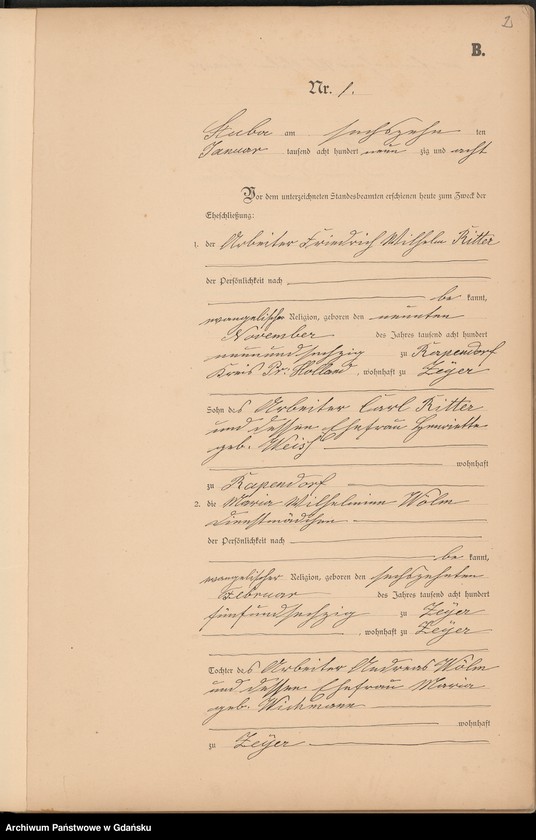 2
B.
Nr. 1.
Stuba am sechszehn ten
Januar tausend acht hundert neun zig und acht
Vor dem unterzeichneten Standesbeamten erschienen heute zum Zweck der
Eheschließung:
1. der Arbeiter Friedrich Wilhelm Ritter
der Persönlichkeit nach
be kannt,
evangelischer Religion, geboren den neunten
November des Jahres tausend acht hundert
neunundsechzig zu Rapendorf
Kreis Pr. Holland, wohnhaft zu Zeyer
Sohn des Arbeiter Carl Ritter
und dessen Ehefrau Henriette
geb. Weiß
wohnhaft
zu Rapendorf
2. die Maria Wilhelmine Wölm
Dienstmädchen
der Persönlichkeit nach
be kannt,
evangelischer Religion, geboren den sechszehnten
Februar des Jahres tausend acht hundert
fünfundsechzig zu Zeyer
, wohnhaft zu Zeyer
Tochter des Arbeiter Andreas Wölm
und dessen Ehefrau Maria
geb. Wichmann
wohnhaft
zu Zeyer
Archiwum Państwowe w Gdańsku